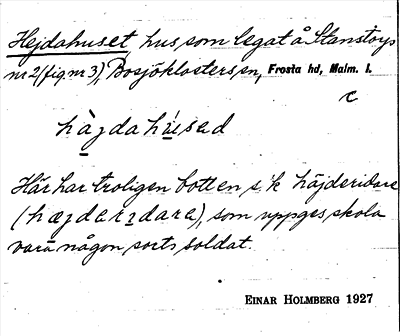 Hejdahuset, hus, som legat å Stanstorps
nr 2 (fig. nr 3), Bosjöklosters sn, Frosta hd, Malm. l.
c
hàjdahúsad
Här har troligen bott en s.k. häjderidare
(hæjdarɪdara), som uppges skola
vara någon sorts soldat.
EINAR HOLMBERG 1927